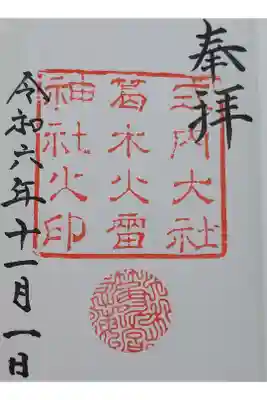 奉拝
式内大社
葛木火雷
神社火印
令和六年十一月一日